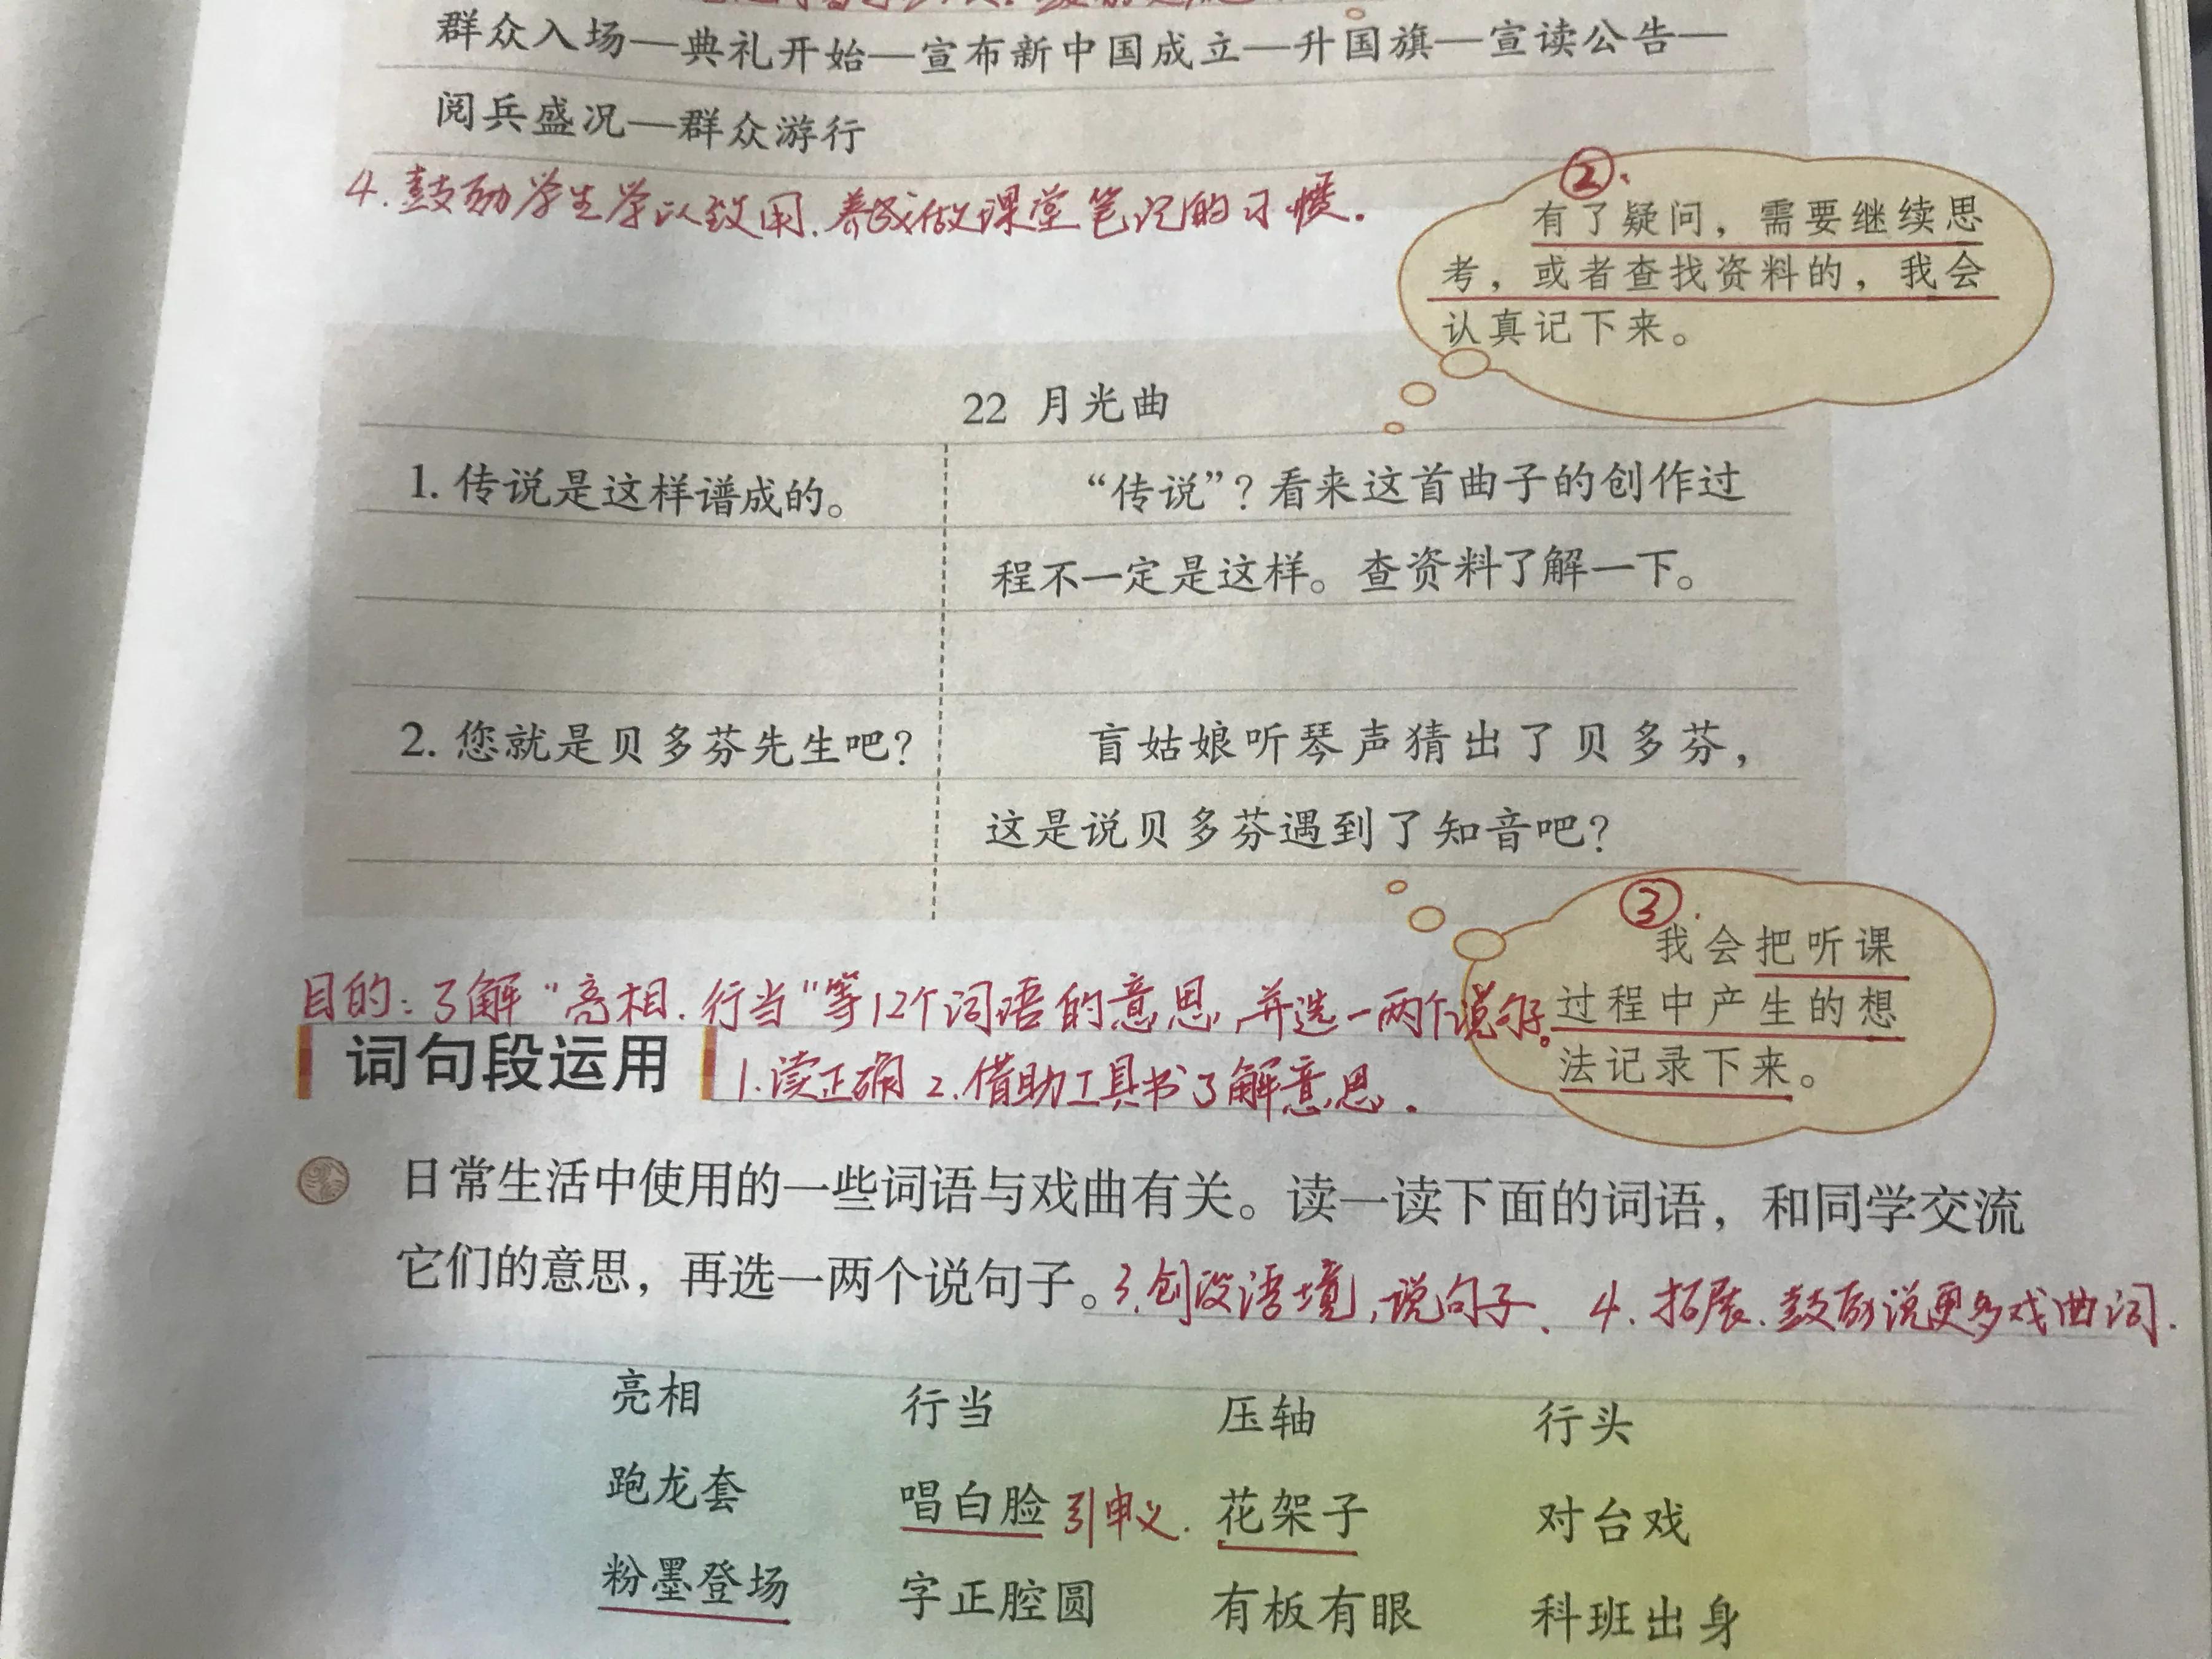 群众入场—典礼开始—宣布新中国成立—升国旗—宣读公告—
阅兵盛况—群众游行
4.鼓励学生学以致用.养成做课堂笔记的习惯.
②.
有了疑问，需要继续思
考，或者查找资料的，我会
认真记下来。
22 月光曲
1. 传说是这样谱成的。
“传说”？看来这首曲子的创作过
程不一定是这样。查资料了解一下。
2. 您就是贝多芬先生吧？
盲姑娘听琴声猜出了贝多芬，
这是说贝多芬遇到了知音吧？
③.
我会把听课
过程中产生的想
法记录下来。
目的：了解“亮相.行当”等12个词语的意思,并选一两个说句子。
词句段运用
1.读正确 2.借助工具书了解意思.
日常生活中使用的一些词语与戏曲有关。读一读下面的词语，和同学交流
它们的意思，再选一两个说句子。3.创设语境,说句子、4.拓展.鼓励说更多戏曲词.
亮相 行当 压轴 行头
跑龙套 唱白脸 引申义. 花架子 对台戏
粉墨登场 字正腔圆 有板有眼 科班出身